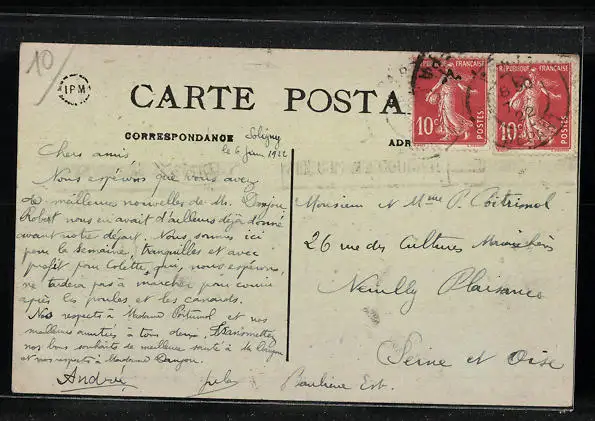 10
IPM
CARTE POSTA
CORRESPONDANCE
ADR
RÉPUBLIQUE FRANÇAISE
10c
POSTES
RÉPUBLIQUE FRANÇAISE
10c
POSTES
Soligny
le 6 juin 1922
Chers amis,
Nous espérons que vous avez
de meilleures nouvelles de Mr.
Robert nous en avait d'ailleurs déjà donné
avant notre départ. Nous sommes ici
pour la semaine, tranquilles et avec
profit pour Colette, qui, nous espérons,
ne tardera pas à marcher pour courir
après les poules et les canards.
Nos respects à Madame Poitrimol et nos
meilleures amitiés à tous deux. Transmettez
nos bons souhaits de meilleure santé à Mr
et nos respects à Madame
André
Monsieur et Mme P. Poitrimol
26 rue des Cultures Maraichères
Neuilly Plaisance
Seine et Oise
Banlieue Est.